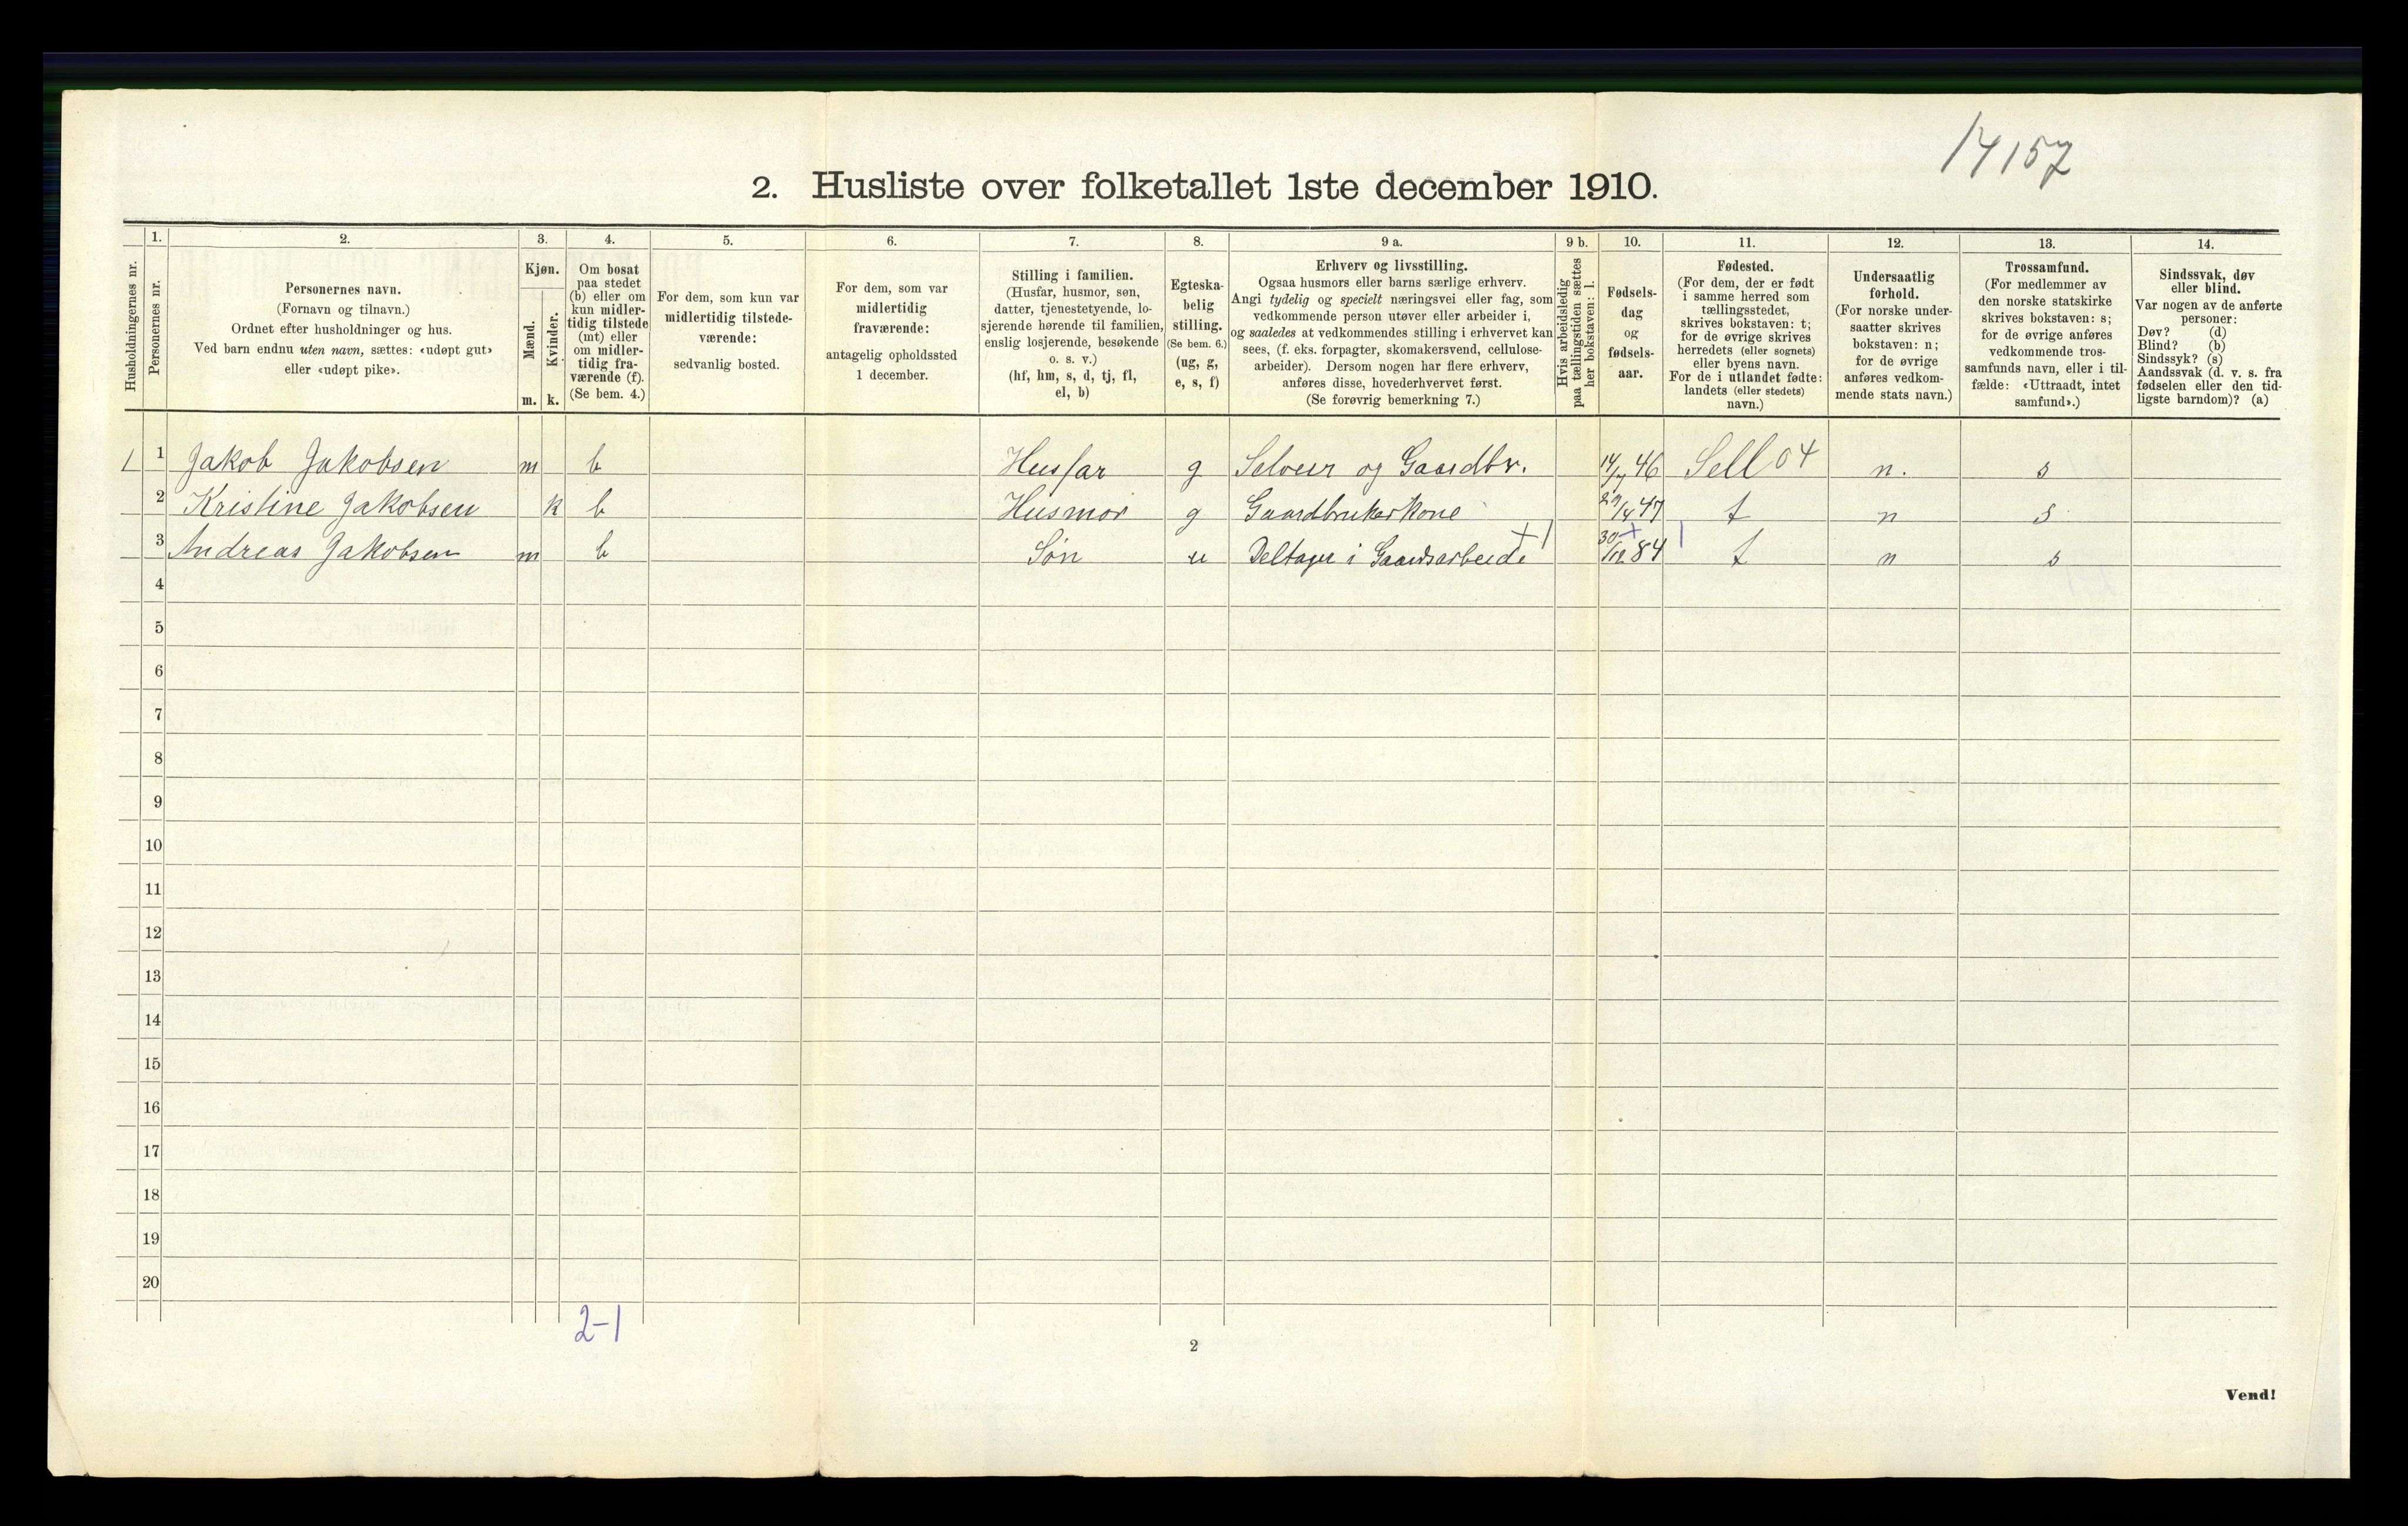 14157
2. Husliste over folketallet 1ste december 1910.
Husholdningernes nr.
1.
Personernes nr.
2.
Personernes navn.
(Fornavn og tilnavn.)
Ordnet efter husholdninger og hus.
Ved barn endnu uten navn, sættes: «udøpt gut»
eller «udøpt pike».
3.
Kjøn.
Mænd.
Kvinder.
m. k.
4.
Om bosat
paa stedet
(b) eller om
kun midler-
tidig tilstede
(mt) eller
om midler-
tidig fra-
værende (f).
(Se bem. 4.)
5.
For dem, som kun var
midlertidig tilstede-
værende:
sedvanlig bosted.
6.
For dem, som var
midlertidig
fraværende:
antagelig opholdssted
1 december.
7.
Stilling i familien.
(Husfar, husmor, søn,
datter, tjenestetyende, lo-
sjerende hørende til familien,
enslig losjerende, besøkende
o. s. v.)
(hf, hm, s, d, tj, fl,
el, b)
8.
Egteska-
belig
stilling.
(Se bem. 6.)
(ug, g,
e, s, f)
9 a.
Erhverv og livsstilling.
Ogsaa husmors eller barns særlige erhverv.
Angi tydelig og specielt næringsvei eller fag, som
vedkommende person utøver eller arbeider i,
og saaledes at vedkommendes stilling i erhvervet kan
sees, (f. eks. forpagter, skomakersvend, cellulose-
arbeider). Dersom nogen har flere erhverv,
anføres disse, hovederhvervet først.
(Se forøvrig bemerkning 7.)
9 b.
Hvis arbeidsledig
paa tællingstiden sættes
her bokstaven: l.
10.
Fødsels-
dag
og
fødsels-
aar.
11.
Fødested.
(For dem, der er født
i samme herred som
tællingsstedet,
skrives bokstaven: t;
for de øvrige skrives
herredets (eller sognets)
eller byens navn.
For de i utlandet fødte:
landets (eller stedets)
navn.)
12.
Undersaatlig
forhold.
(For norske under-
saatter skrives
bokstaven: n;
for de øvrige
anføres vedkom-
mende stats navn.)
13.
Trossamfund.
(For medlemmer av
den norske statskirke
skrives bokstaven: s;
for de øvrige anføres
vedkommende tros-
samfunds navn, eller i til-
fælde: «Uttraadt, intet
samfund».)
14.
Sindssvak, døv
eller blind.
Var nogen av de anførte
personer:
Døv? (d)
Blind? (b)
Sindssyk? (s)
Aandssvak (d. v. s. fra
fødselen eller den tid-
ligste barndom)? (a)
1 1 Jakob Jakobsen m b Husfar g Selveier og Gaardbr. 14/7 46 Sell 04 n. s
2 Kristine Jakobsen k b Husmor g Gaardbrukerkone 29/4 47 t n s
3 Andreas Jakobsen m b Søn u Deltager i Gaardsarbeide + 1 30/12 84 t n s
4
5
6
7
8
9
10
11
12
13
14
15
16
17
18
19
20
2-1
2
Vend!